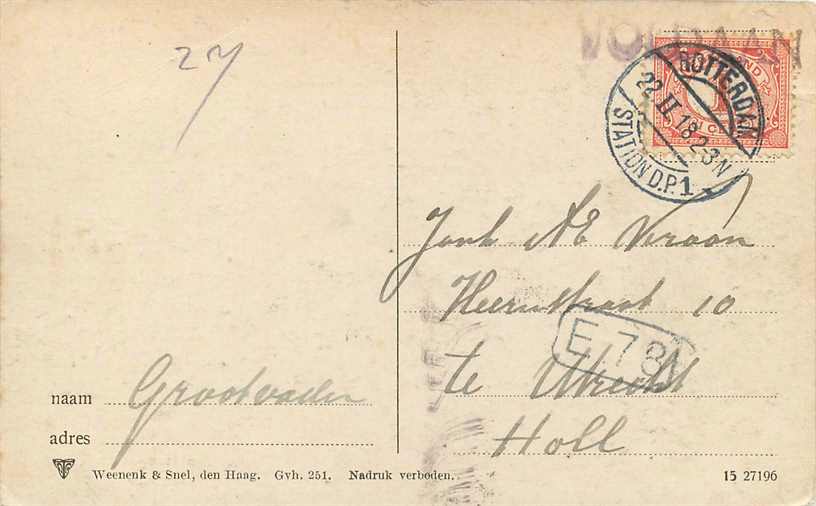 27
VOLDAAN
ROTTERDAM
22 II 18 2-3N
STATION D.P. 1
1 CENT
Jonk AE Vroon
Heerenstraat 10
E 78
te Utrecht
Holl
naam Grootvader
adres
Weenenk & Snel, den Haag. Gvh. 251. Nadruk verboden.
15 27196